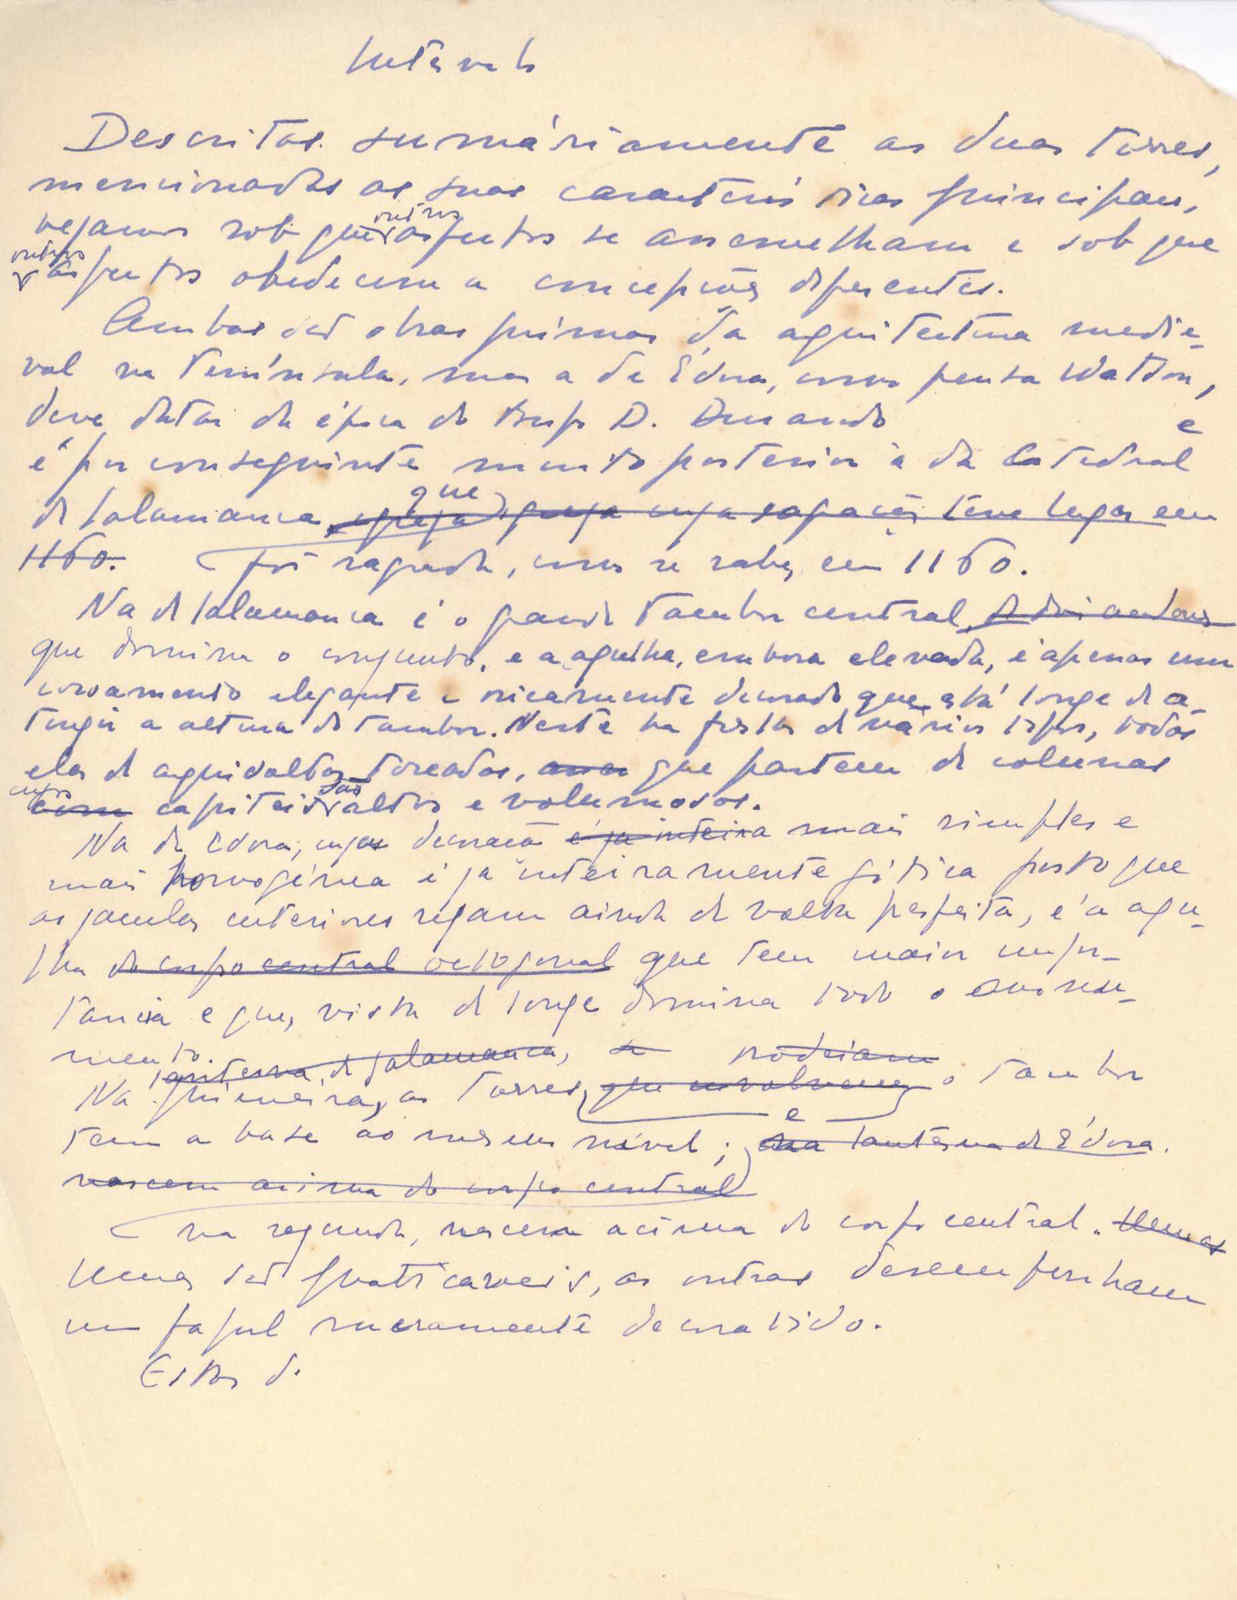 Intervalo
Descritas sumáriamente as duas torres,
mencionadas as suas características principais,
vejamos sob que outros aspectos se assemelham e sob que
outros aspectos obedecem a concepções diferentes.
Ambas são obras primas da arquitectura medie-
val na Península, mas a de Évora, como pensa Watson,
deve datar da época do Bispo D. Durando e
é por conseguinte muito posterior à da Catedral
de Salamanca, que igreja cuja sagração teve lugar em
1160. foi sagrada, como se sabe, em 1160.
Na de Salamanca é o grande tambor central,
que domina o conjunto, e a agulha, embora elevada, é apenas um
coroamento elegante e ricamente decorado que está longe de a-
tingir a altura do tambor. Neste ha frestas de vários tipos, todas
elas de arquivoltas toreadas, que partem de colunas
cujos com capiteis são altos e volumosos.
Na de Évora, cuja decoração é já inteira mais simples e
mais homogénea é já inteiramente gótica posto que
as janelas interiores sejam ainda de volta perfeita, é a agu-
lha do corpo central octogonal que tem maior impor-
tancia e que, vista de longe domina todo o
mento.
lanterna de Salamanca, se
Na primeira, as torres que envolvem o tambor
tem a base ao mesmo nível; e na lanterna de Évora.
nascem acima do corpo central
na segunda, nascem acima do corpo central. Umas
Umas são praticaveis, as outras desempenham
um papel meramente decorativo.
Estas d.